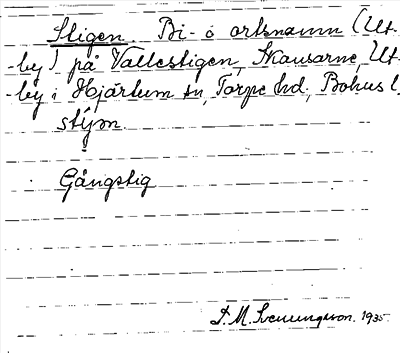 Stigen. Bi- o ortsnamn (Ut-
-by) på Vallestigen, Skausarne, Ut-
-by i Hjärtum sn, Torpe hd, Bohus l.
stı̄jm.
Gångstig
D. M. Svenungsson. 1935.